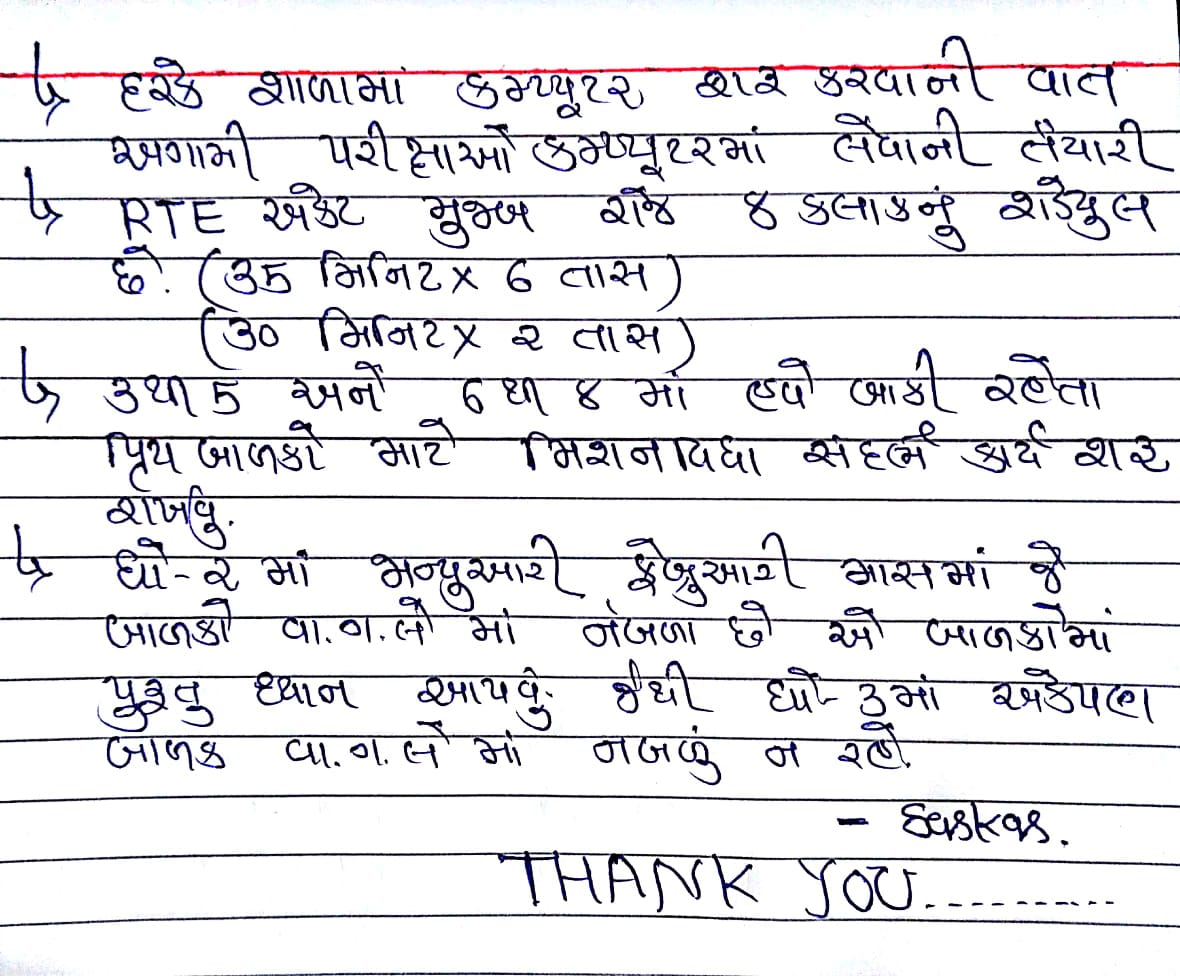 ↳ દરેક શાળામાં કમ્પ્યૂટર શરૂ કરવાની વાત
અગામી પરીક્ષાઓ કમ્પ્યૂટરમાં લેવાની તૈયારી
↳ RTE એકેટ મુજબ રોજ ૪ કલાકનું શેડ્યુલ
છે. (૩૫ મિનિટ × ૬ તાસ)
(૩૦ મિનિટ × ૨ તાસ)
↳ ૩ થી ૫ અને ૬ થી ૮ માં હવે બાકી રહેતા
પ્રિય બાળકો માટે મિશનવિદ્યા સંદર્ભે કાર્ય શરૂ
રાખવુ.
↳ ધો-૨ માં જાન્યુઆરી ફેબ્રુઆરી માસમાં જે
બાળકો વા.ગ.લે માં નબળા છે એ બાળકોમાં
પુરતુ ધ્યાન આપવું. જેથી ધો-૩માં એકેપણ
બાળક વા.ગ.લે માં નબળું ન રહે.
THANK YOU..........